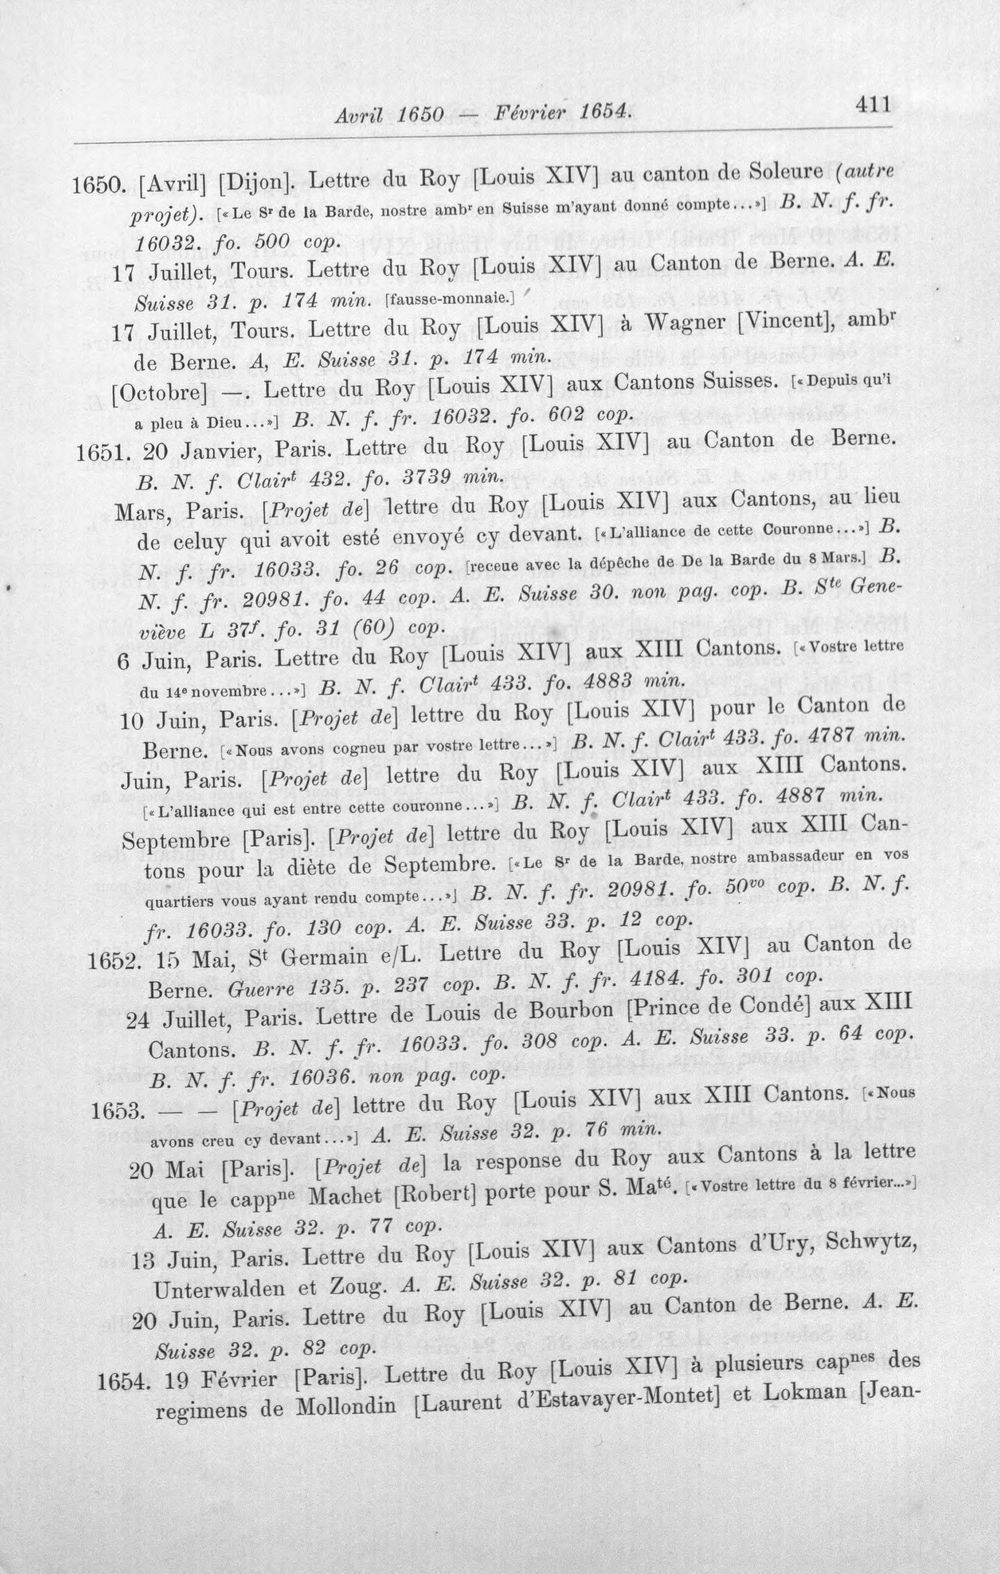 Avril 1650 — Février 1654.
411
1650. [Avril] [Dijon]. Lettre du Roy [Louis XIV] au canton de Soleure (autre
projet). [«Le Sr de la Barde, nostre ambr en Suisse m'ayant donné compte...»] B. N. f. fr.
16032. fo. 500 cop.
17 Juillet, Tours. Lettre du Roy [Louis XIV] au Canton de Berne. A. E.
Suisse 31. p. 174 min. [fausse-monnaie.]
17 Juillet, Tours. Lettre du Roy [Louis XIV] à Wagner [Vincent], ambr
de Berne. A, E. Suisse 31. p. 174 min.
[Octobre] —. Lettre du Roy [Louis XIV] aux Cantons Suisses. [«Depuis qu'i
a pleu à Dieu...»] B. N. f. fr. 16032. fo. 602 cop.
1651. 20 Janvier, Paris. Lettre du Roy [Louis XIV] au Canton de Berne.
B. N. f. Clairt 432. fo. 3739 min.
Mars, Paris. [Projet de] lettre du Roy [Louis XIV] aux Cantons, au lieu
de celuy qui avoit esté envoyé cy devant. [«L'alliance de cette Couronne...»] B.
N. f. fr. 16033. fo. 26 cop. [receue avec la dépêche de De la Barde du 8 Mars.] B.
N. f. fr. 20981. fo. 44 cop. A. E. Suisse 30. non pag. cop. B. Ste Gene-
viève L 37f. fo. 31 (60) cop.
6 Juin, Paris. Lettre du Roy [Louis XIV] aux XIII Cantons. [«Vostre lettre
du 14e novembre...»] B. N. f. Clairt 433. fo. 4883 min.
10 Juin, Paris. [Projet de] lettre du Roy [Louis XIV] pour le Canton de
Berne. [«Nous avons cogneu par vostre lettre...»] B. N. f. Clairt 433. fo. 4787 min.
Juin, Paris. [Projet de] lettre du Roy [Louis XIV] aux XIII Cantons.
[«L'alliance qui est entre cette couronne...»] B. N. f. Clairt 433. fo. 4887 min.
Septembre [Paris]. [Projet de] lettre du Roy [Louis XIV] aux XIII Can-
tons pour la diète de Septembre. [«Le Sr de la Barde, nostre ambassadeur en vos
quartiers vous ayant rendu compte...»] B. N. f. fr. 20981. fo. 50vo cop. B. N. f.
fr. 16033. fo. 130 cop. A. E. Suisse 33. p. 12 cop.
1652. 15 Mai, St Germain e/L. Lettre du Roy [Louis XIV] au Canton de
Berne. Guerre 135. p. 237 cop. B. N. f. fr. 4184. fo. 301 cop.
24 Juillet, Paris. Lettre de Louis de Bourbon [Prince de Condé] aux XIII
Cantons. B. N. f. fr. 16033. fo. 308 cop. A. E. Suisse 33. p. 64 cop.
B. N. f. fr. 16036. non pag. cop.
1653. — — [Projet de] lettre du Roy [Louis XIV] aux XIII Cantons. [«Nous
avons creu cy devant...»] A. E. Suisse 32. p. 76 min.
20 Mai [Paris]. [Projet de] la response du Roy aux Cantons à la lettre
que le cappne Machet [Robert] porte pour S. Maté. [«Vostre lettre du 8 février...»]
A. E. Suisse 32. p. 77 cop.
13 Juin, Paris. Lettre du Roy [Louis XIV] aux Cantons d'Ury, Schwytz,
Unterwalden et Zoug. A. E. Suisse 32. p. 81 cop.
20 Juin, Paris. Lettre du Roy [Louis XIV] au Canton de Berne. A. E.
Suisse 32. p. 82 cop.
1654. 19 Février [Paris]. Lettre du Roy [Louis XIV] à plusieurs capnes des
regimens de Mollondin [Laurent d'Estavayer-Montet] et Lokman [Jean-